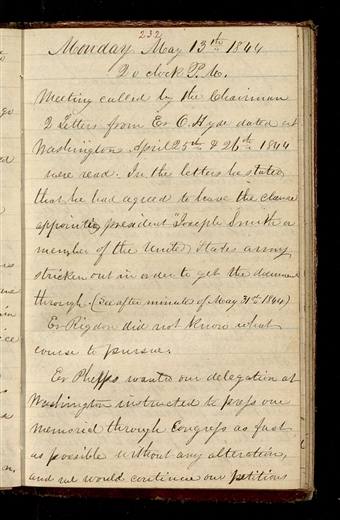 232
Monday May 13th 1844
2 o clock P.M.
Meeting called by the Chairman
2 Letters from Er O. Hyde dated at
Washington April 25th & 26th 1844
were read. In the letters he stated
that he had agreed to leave the clause
appointing president "Joseph Smith a
member of the United States army
stricken out in order to get the
through. (See after minutes of May 31st 1844)
Er Rigdon did not know what
course to pursue.
Er Phelps wanted our delegation at
Washington instructed to press our
memorial through Congress as fast
as possible without any alteration,
and we would continue our petitions